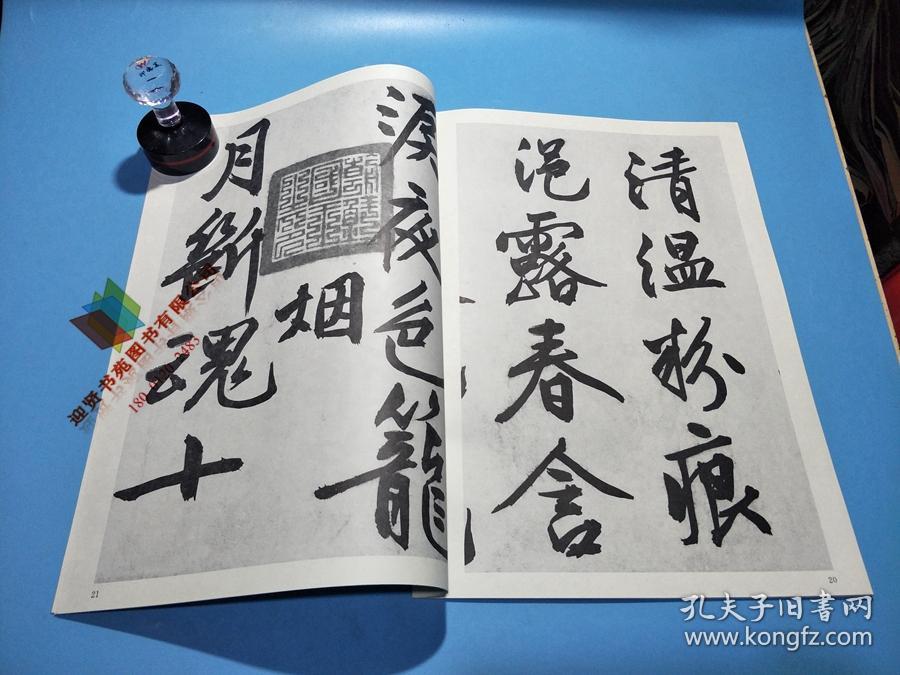 清温粉痕
浥露春含
淚夜色籠
烟
月斷魂十
20
21
书苑图书有限公司
孔夫子旧书网
www.kongfz.com